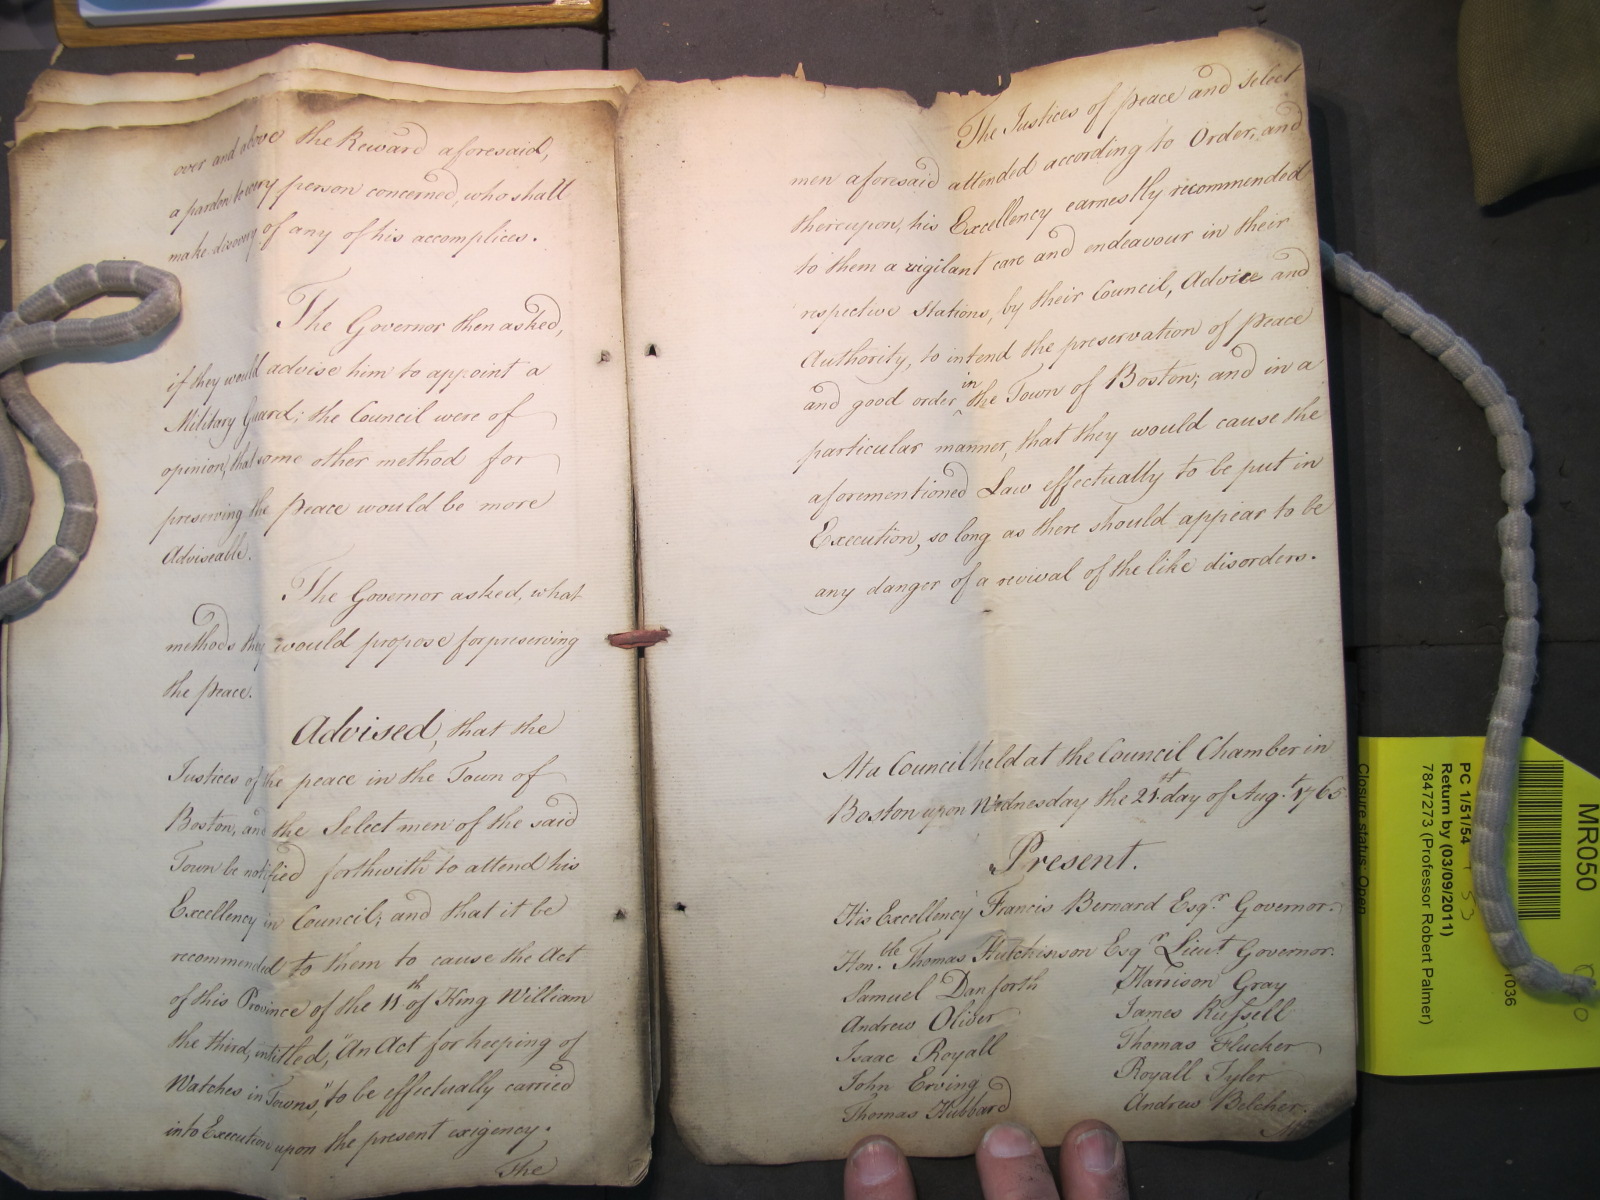 over and above the Reward aforesaid,
a pardon to every person concerned, who shall
make discovery of any of his accomplices.
The Governor then asked,
if they would advise him to appoint a
Military Guard; the Council were of
opinion, that some other method for
preserving the Peace would be more
Adviseable.
The Governor asked, what
methods they would propose for preserving
the Peace.
Advised, that the
Justices of the peace in the Town of
Boston, and the Select men of the said
Town be notified forthwith to attend his
Excellency in Council; and that it be
recommended to them to cause the Act
of this Province of the 11th of King William
the third, intitled, "An Act for keeping of
Watches in Towns," to be effectually carried
into Execution upon the present exigency.
The
The Justices of peace and select
men aforesaid attended according to Order, and
thereupon, his Excellency earnestly recommended
to them a vigilant care and endeavour in their
respective Stations, by their Council, Advice and
Authority, to intend the preservation of Peace
and good order in the Town of Boston; and in a
particular manner, that they would cause the
aforementioned Law effectually to be put in
Execution, so long as there should appear to be
any danger of a revival of the like disorders.
At a Council held at the Council Chamber in
Boston upon Wednesday the 21st day of Augt. 1765
Present.
His Excellency Francis Bernard Esqr. Governor.
Honble. Thomas Hutchinson Esqr Lieut Governor.
Samuel Danforth
Andrew Oliver
Isaac Royall
John Erving
Thomas Hubbard
Harrison Gray
James Russell
Thomas Flucker
Royall Tyler
Andrew Belcher.
MR050
PC 1/51/54
Return by (03/09/2011)
7847273 (Professor Robert Palmer)
Closure status Open
1036
53